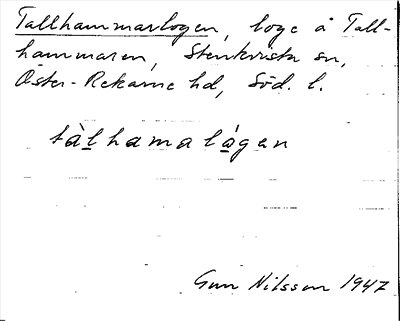 Tallhammarlogen, loge å Tall-
hammaren, Stenkvista sn,
Öster-Rekarne hd, Söd. l.
tàlhamalógen
Gun Nilsson 1947